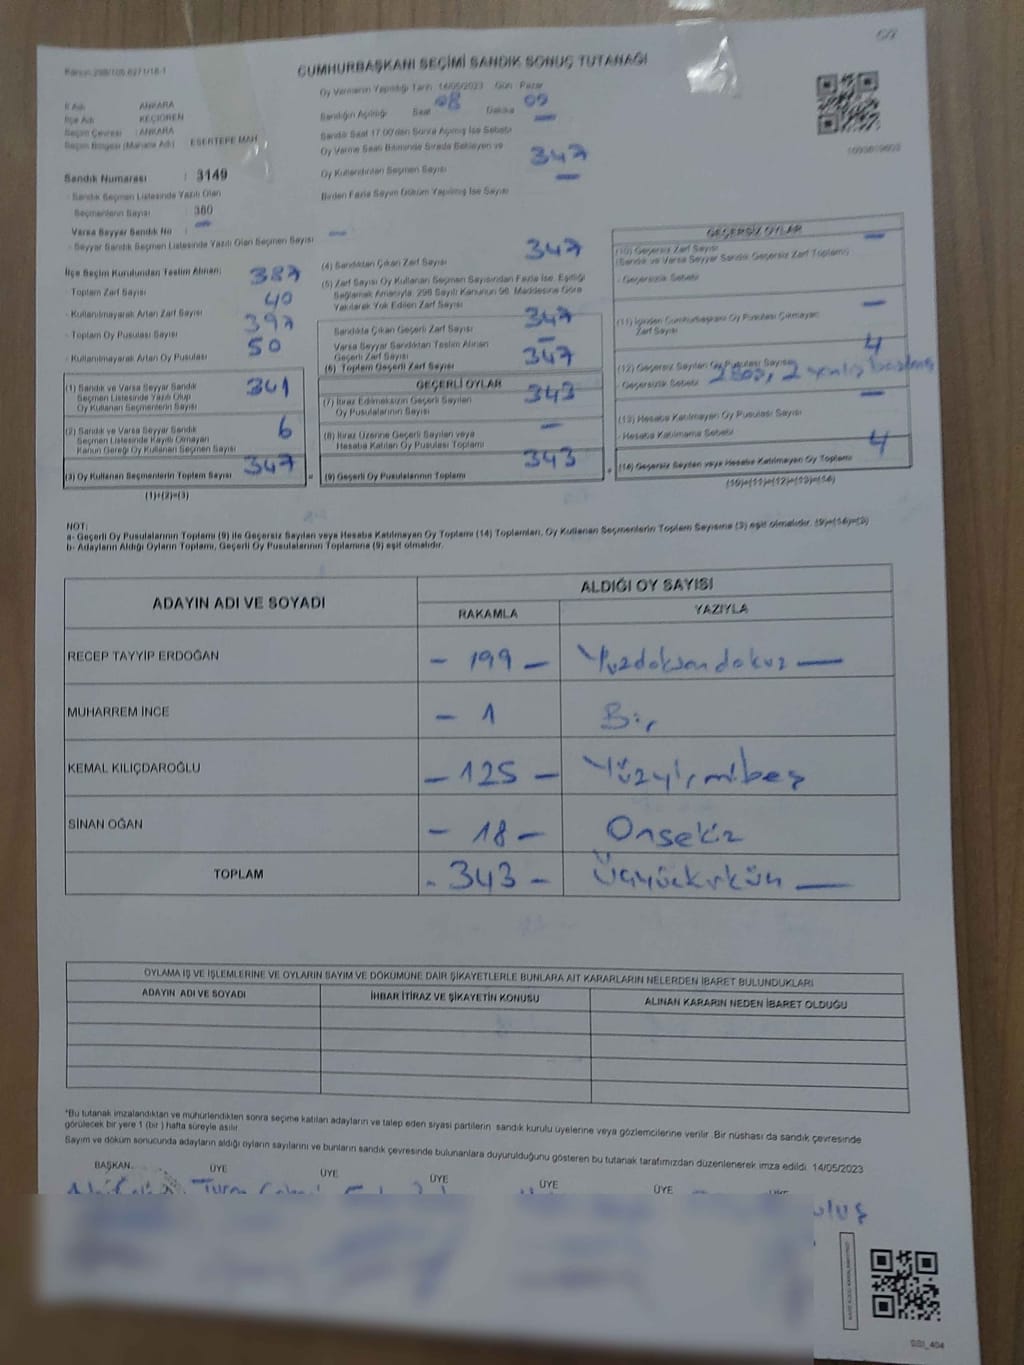 CUMHURBAŞKANI SEÇİMİ SANDIK SONUÇ TUTANAĞI
Oy Vermenin Yapıldığı Tarih 14/05/2023 Gün Pazar
İl Adı : ANKARA
İlçe Adı : KEÇİÖREN
Seçim Çevresi : ANKARA
Seçim Bölgesi (Mahalle Adı) : ESERTEPE MAH
Sandık Numarası : 3149
- Sandık Seçmen Listesinde Yazılı Olan
Seçmenlerin Sayısı : 380
Varsa Seyyar Sandık No : —
- Seyyar Sandık Seçmen Listesinde Yazılı Olan Seçmen Sayısı —
Sandığın Açılışı Saat 08 Dakika 00
Sandık Saat 17.00'den Sonra Açılmış İse Sebebi —
Oy Verme Saati Bitiminde Sırada Bekleyen ve
Oy Kullandırılan Seçmen Sayısı 347
Birden Fazla Sayım Döküm Yapılmış İse Sayısı —
İlçe Seçim Kurulundan Teslim Alınan;
- Toplam Zarf Sayısı 387
- Kullanılmayarak Artan Zarf Sayısı 40
- Toplam Oy Pusulası Sayısı 397
- Kullanılmayarak Artan Oy Pusulası 50
(1) Sandık ve Varsa Seyyar Sandık
Seçmen Listesinde Yazılı Olup
Oy Kullanan Seçmenlerin Sayısı 341
(2) Sandık ve Varsa Seyyar Sandık
Seçmen Listesinde Kayıtlı Olmayan
Kanun Gereği Oy Kullanan Seçmen Sayısı 6
(3) Oy Kullanan Seçmenlerin Toplam Sayısı 347 =
(1)+(2)=(3)
(4) Sandıktan Çıkan Zarf Sayısı 347
(5) Zarf Sayısı Oy Kullanan Seçmen Sayısından Fazla İse, Eşitliği
Sağlamak Amacıyla, 298 Sayılı Kanunun 98. Maddesine Göre
Yakılarak Yok Edilen Zarf Sayısı
Sandıkta Çıkan Geçerli Zarf Sayısı 347
Varsa Seyyar Sandıktan Teslim Alınan
Geçerli Zarf Sayısı —
(6) Toplam Geçerli Zarf Sayısı 347
GEÇERLİ OYLAR
(7) İtiraz Edilmeksizin Geçerli Sayılan
Oy Pusulalarının Sayısı 343
(8) İtiraz Üzerine Geçerli Sayılan veya
Hesaba Katılan Oy Pusulası Toplamı —
(9) Geçerli Oy Pusulalarının Toplamı 343 +
GEÇERSİZ OYLAR
(10) Geçersiz Zarf Sayısı —
(Sandık ve Varsa Seyyar Sandık Geçersiz Zarf Toplamı)
- Geçersizlik Sebebi
(11) İçinden Cumhurbaşkanı Oy Pusulası Çıkmayan —
Zarf Sayısı
(12) Geçersiz Sayılan Oy Pusulası Sayısı 4
- Geçersizlik Sebebi 2 Boş, 2 yanlış basılmış
(13) Hesaba Katılmayan Oy Pusulası Sayısı —
- Hesaba Katılmama Sebebi
(14) Geçersiz Sayılan veya Hesaba Katılmayan Oy Toplamı 4
(10)+(11)+(12)+(13)=(14)
NOT:
a- Geçerli Oy Pusulalarının Toplamı (9) ile Geçersiz Sayılan veya Hesaba Katılmayan Oy Toplamı (14) Toplamları, Oy Kullanan Seçmenlerin Toplam Sayısına (3) eşit olmalıdır. (9)+(14)=(3)
b- Adayların Aldığı Oyların Toplamı, Geçerli Oy Pusulalarının Toplamına (9) eşit olmalıdır.
ADAYIN ADI VE SOYADI ALDIĞI OY SAYISI
RAKAMLA YAZIYLA
RECEP TAYYİP ERDOĞAN - 199 - Yüzdoksandokuz —
MUHARREM İNCE - 1 Bir
KEMAL KILIÇDAROĞLU - 125 - Yüzyirmibeş
SİNAN OĞAN - 18 - Onsekiz
TOPLAM - 343 - Üçyüzkırküç —
OYLAMA İŞ VE İŞLEMLERİNE VE OYLARIN SAYIM VE DÖKÜMÜNE DAİR ŞİKAYETLERLE BUNLARA AİT KARARLARIN NELERDEN İBARET BULUNDUKLARI
ADAYIN ADI VE SOYADI İHBAR İTİRAZ VE ŞİKAYETİN KONUSU ALINAN KARARIN NEDEN İBARET OLDUĞU
*Bu tutanak imzalandıktan ve mühürlendikten sonra seçime katılan adayların ve talep eden siyasi partilerin sandık kurulu üyelerine veya gözlemcilerine verilir. Bir nüshası da sandık çevresinde
görülecek bir yere 1 (bir) hafta süreyle asılır.
Sayım ve döküm sonucunda adayların aldığı oyların sayılarını ve bunların sandık çevresinde bulunanlara duyurulduğunu gösteren bu tutanak tarafımızdan düzenlenerek imza edildi. 14/05/2023
BAŞKAN ÜYE ÜYE ÜYE ÜYE ÜYE